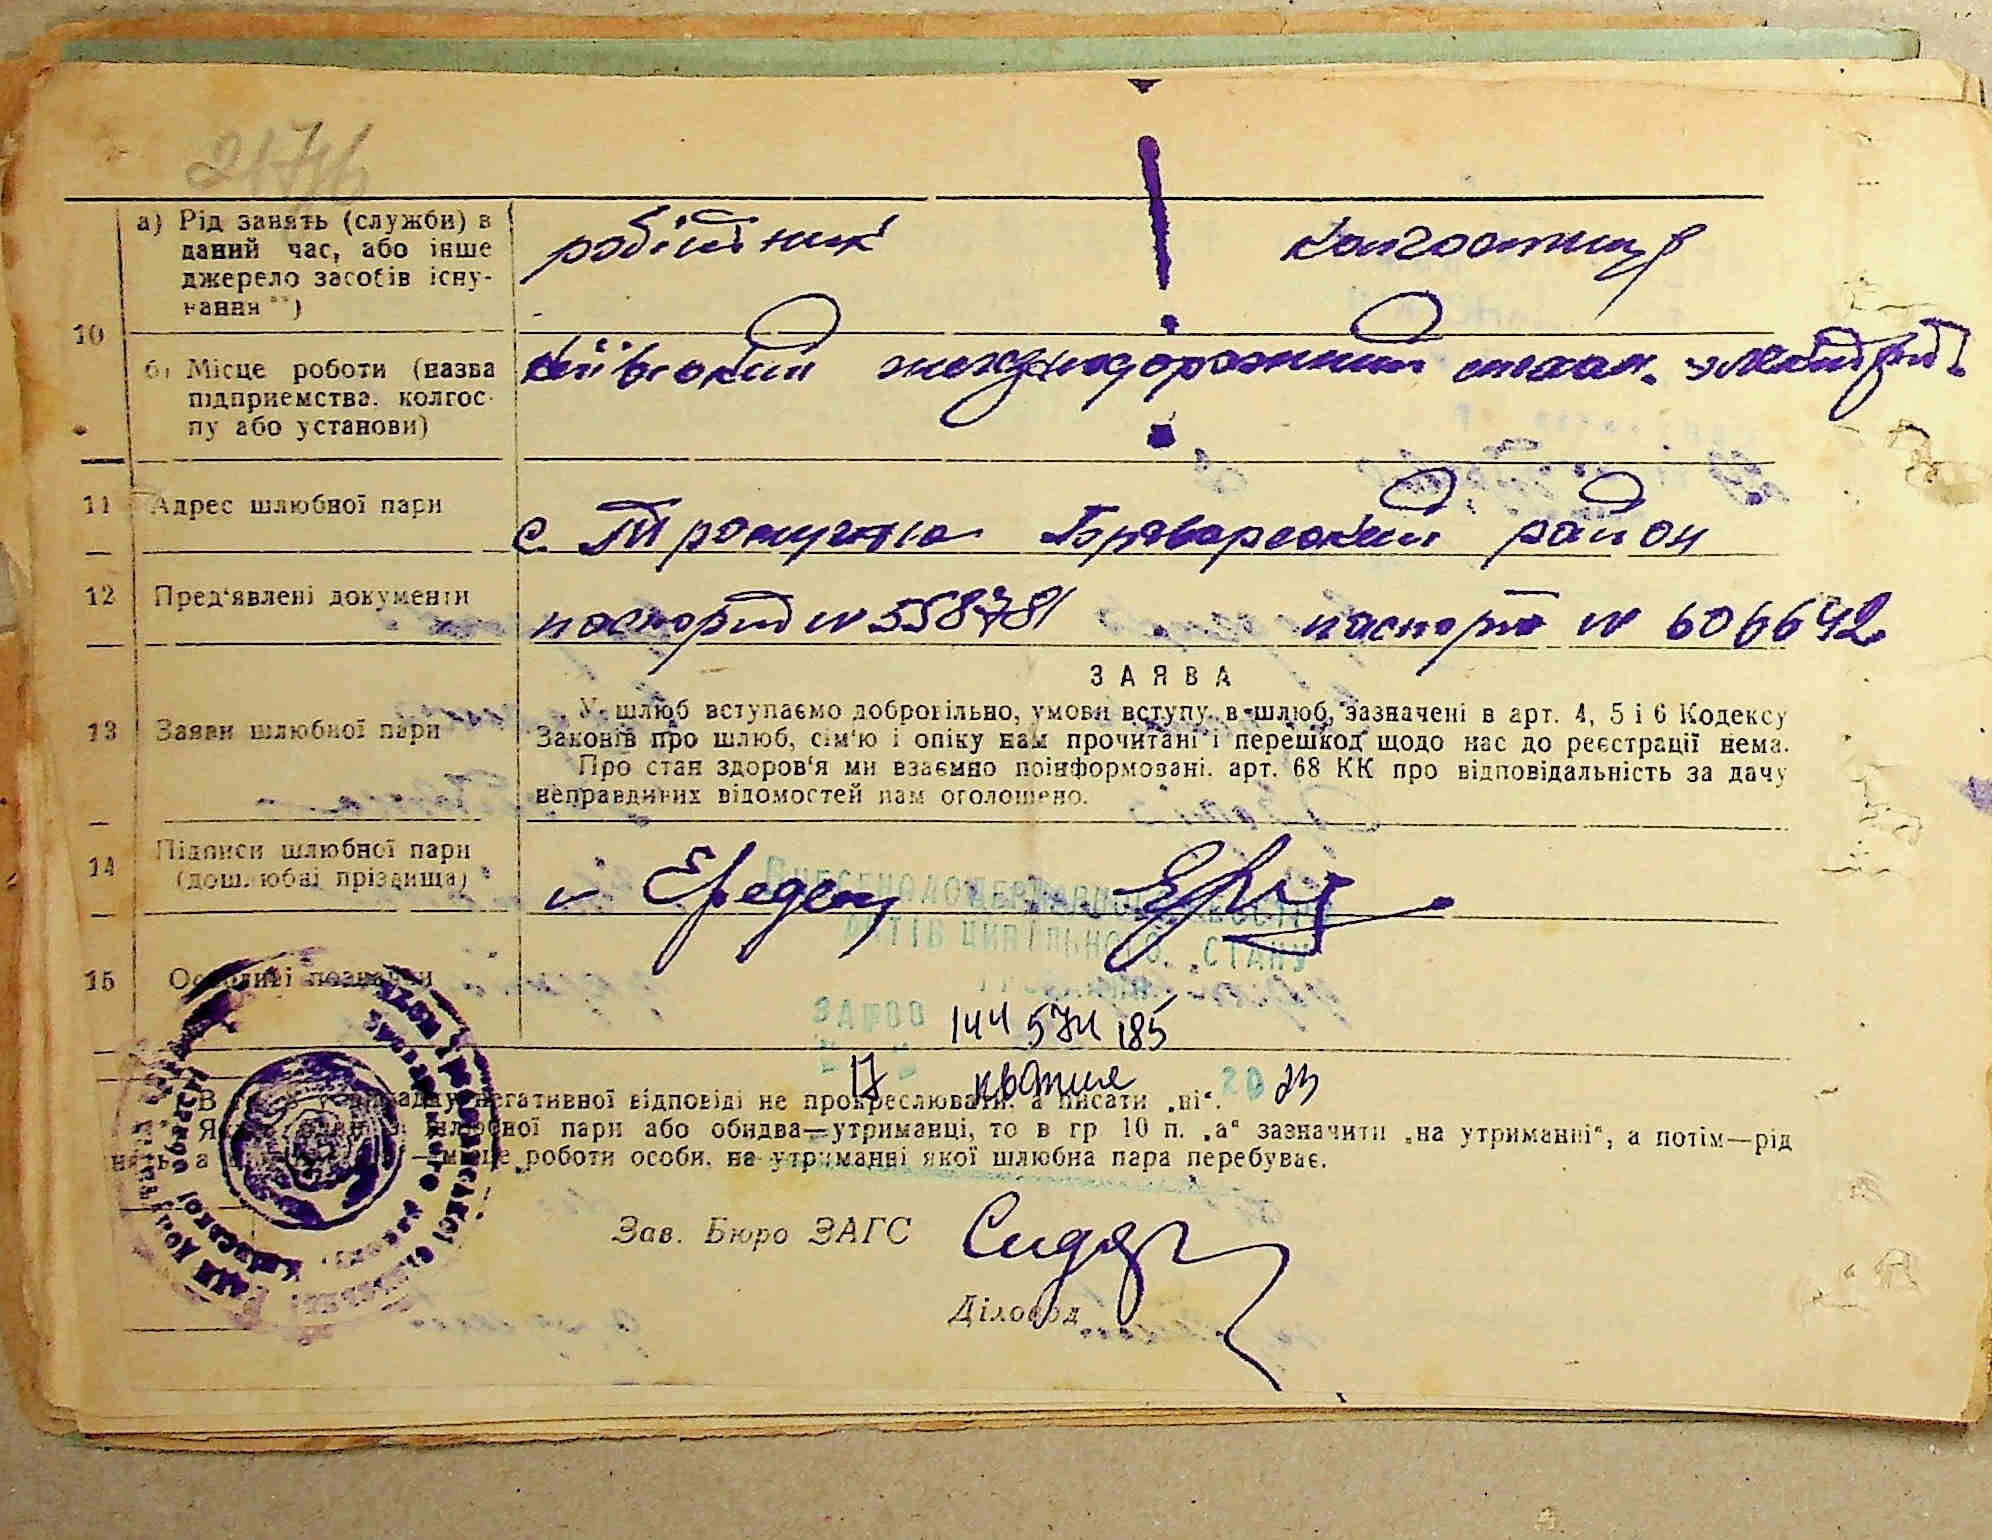 2176
а) Рід занять (служби) в
даний час, або інше
джерело засобів існу-
вання **)
робітник
колгоспниця
10
б) Місце роботи (назва
підприємства, колгос-
пу або установи)
Київський
11 Адрес шлюбної пари
с. Требухів Броварський район
12 Пред'явлені документи
паспорт № 558781
паспорт № 606642
ЗАЯВА
13 Заяви шлюбної пари
У шлюб вступаємо добровільно, умови вступу в шлюб, зазначені в арт. 4, 5 і 6 Кодексу
Законів про шлюб, сім'ю і опіку нам прочитані і перешкод щодо нас до реєстрації нема.
Про стан здоров'я ми взаємно поінформовані. арт. 68 КК про відповідальність за дачу
неправдивих відомостей нам оголошено.
14 Підписи шлюбної пари
(дошлюбні прізвища)
Внесено до Державного реєстру
актів цивільного стану
15 Особливі познавки
144 574 185
17 квітня 20 23
негативної відповіді не прокреслювати, а писати „ні“.
шлюбної пари або обидва—утриманці, то в гр 10 п. „а“ зазначити „на утриманні“, а потім—рід
—місце роботи особи, на утриманні якої шлюбна пара перебуває.
Зав. Бюро ЗАГС
Діловод